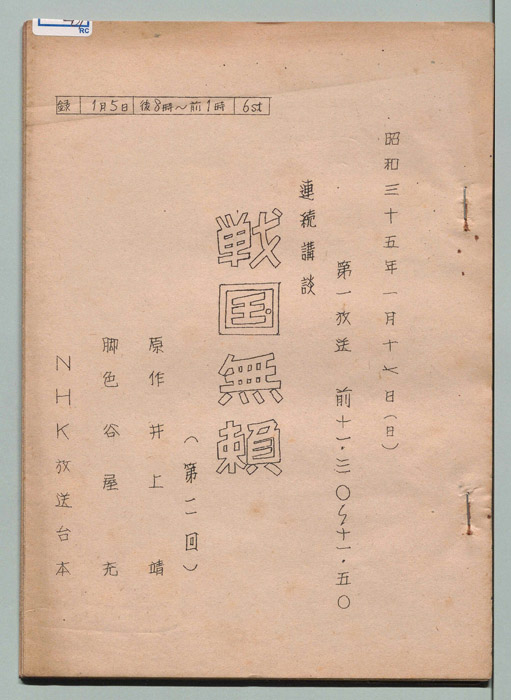 録 1月5日 後8時～前1時 6st
昭和三十五年一月十七日(日)
第一放送 前十一・三〇～十一・五〇
連続講談
戦国無頼
(第二回)
原作 井上 靖
脚色 谷屋 充
NHK放送台本
RC